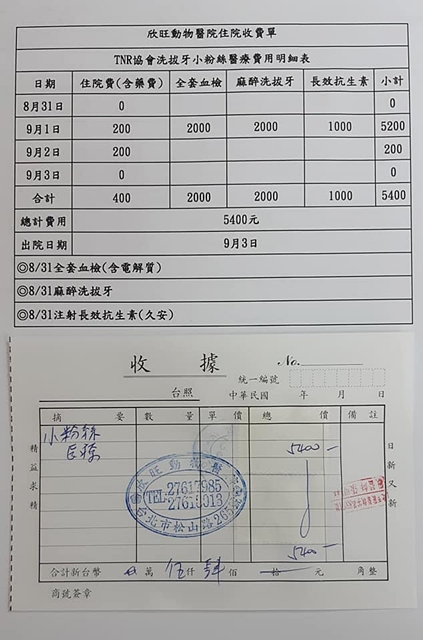 欣旺動物醫院住院收費單
TNR協會洗拔牙小粉絲醫療費用明細表
日期 住院費(含藥費) 全套血檢 麻醉洗拔牙 長效抗生素 小計
8月31日 0 0
9月1日 200 2000 2000 1000 5200
9月2日 200 200
9月3日 0 0
合計 400 2000 2000 1000 5400
總計費用 5400元
出院日期 9月3日
◎8/31全套血檢(含電解質)
◎8/31麻醉洗拔牙
◎8/31注射長效抗生素(久安)
收據 No.
統一編號
台照 中華民國 年 月 日
摘要 數量 單價 總價 備註
小粉絲 5400-
醫療
精益求精
日新又新
欣旺動
TEL:27617985
台北市松山路265
5400-
合計新台幣 萬 伍仟 肆佰 拾 元 角整
商號簽章